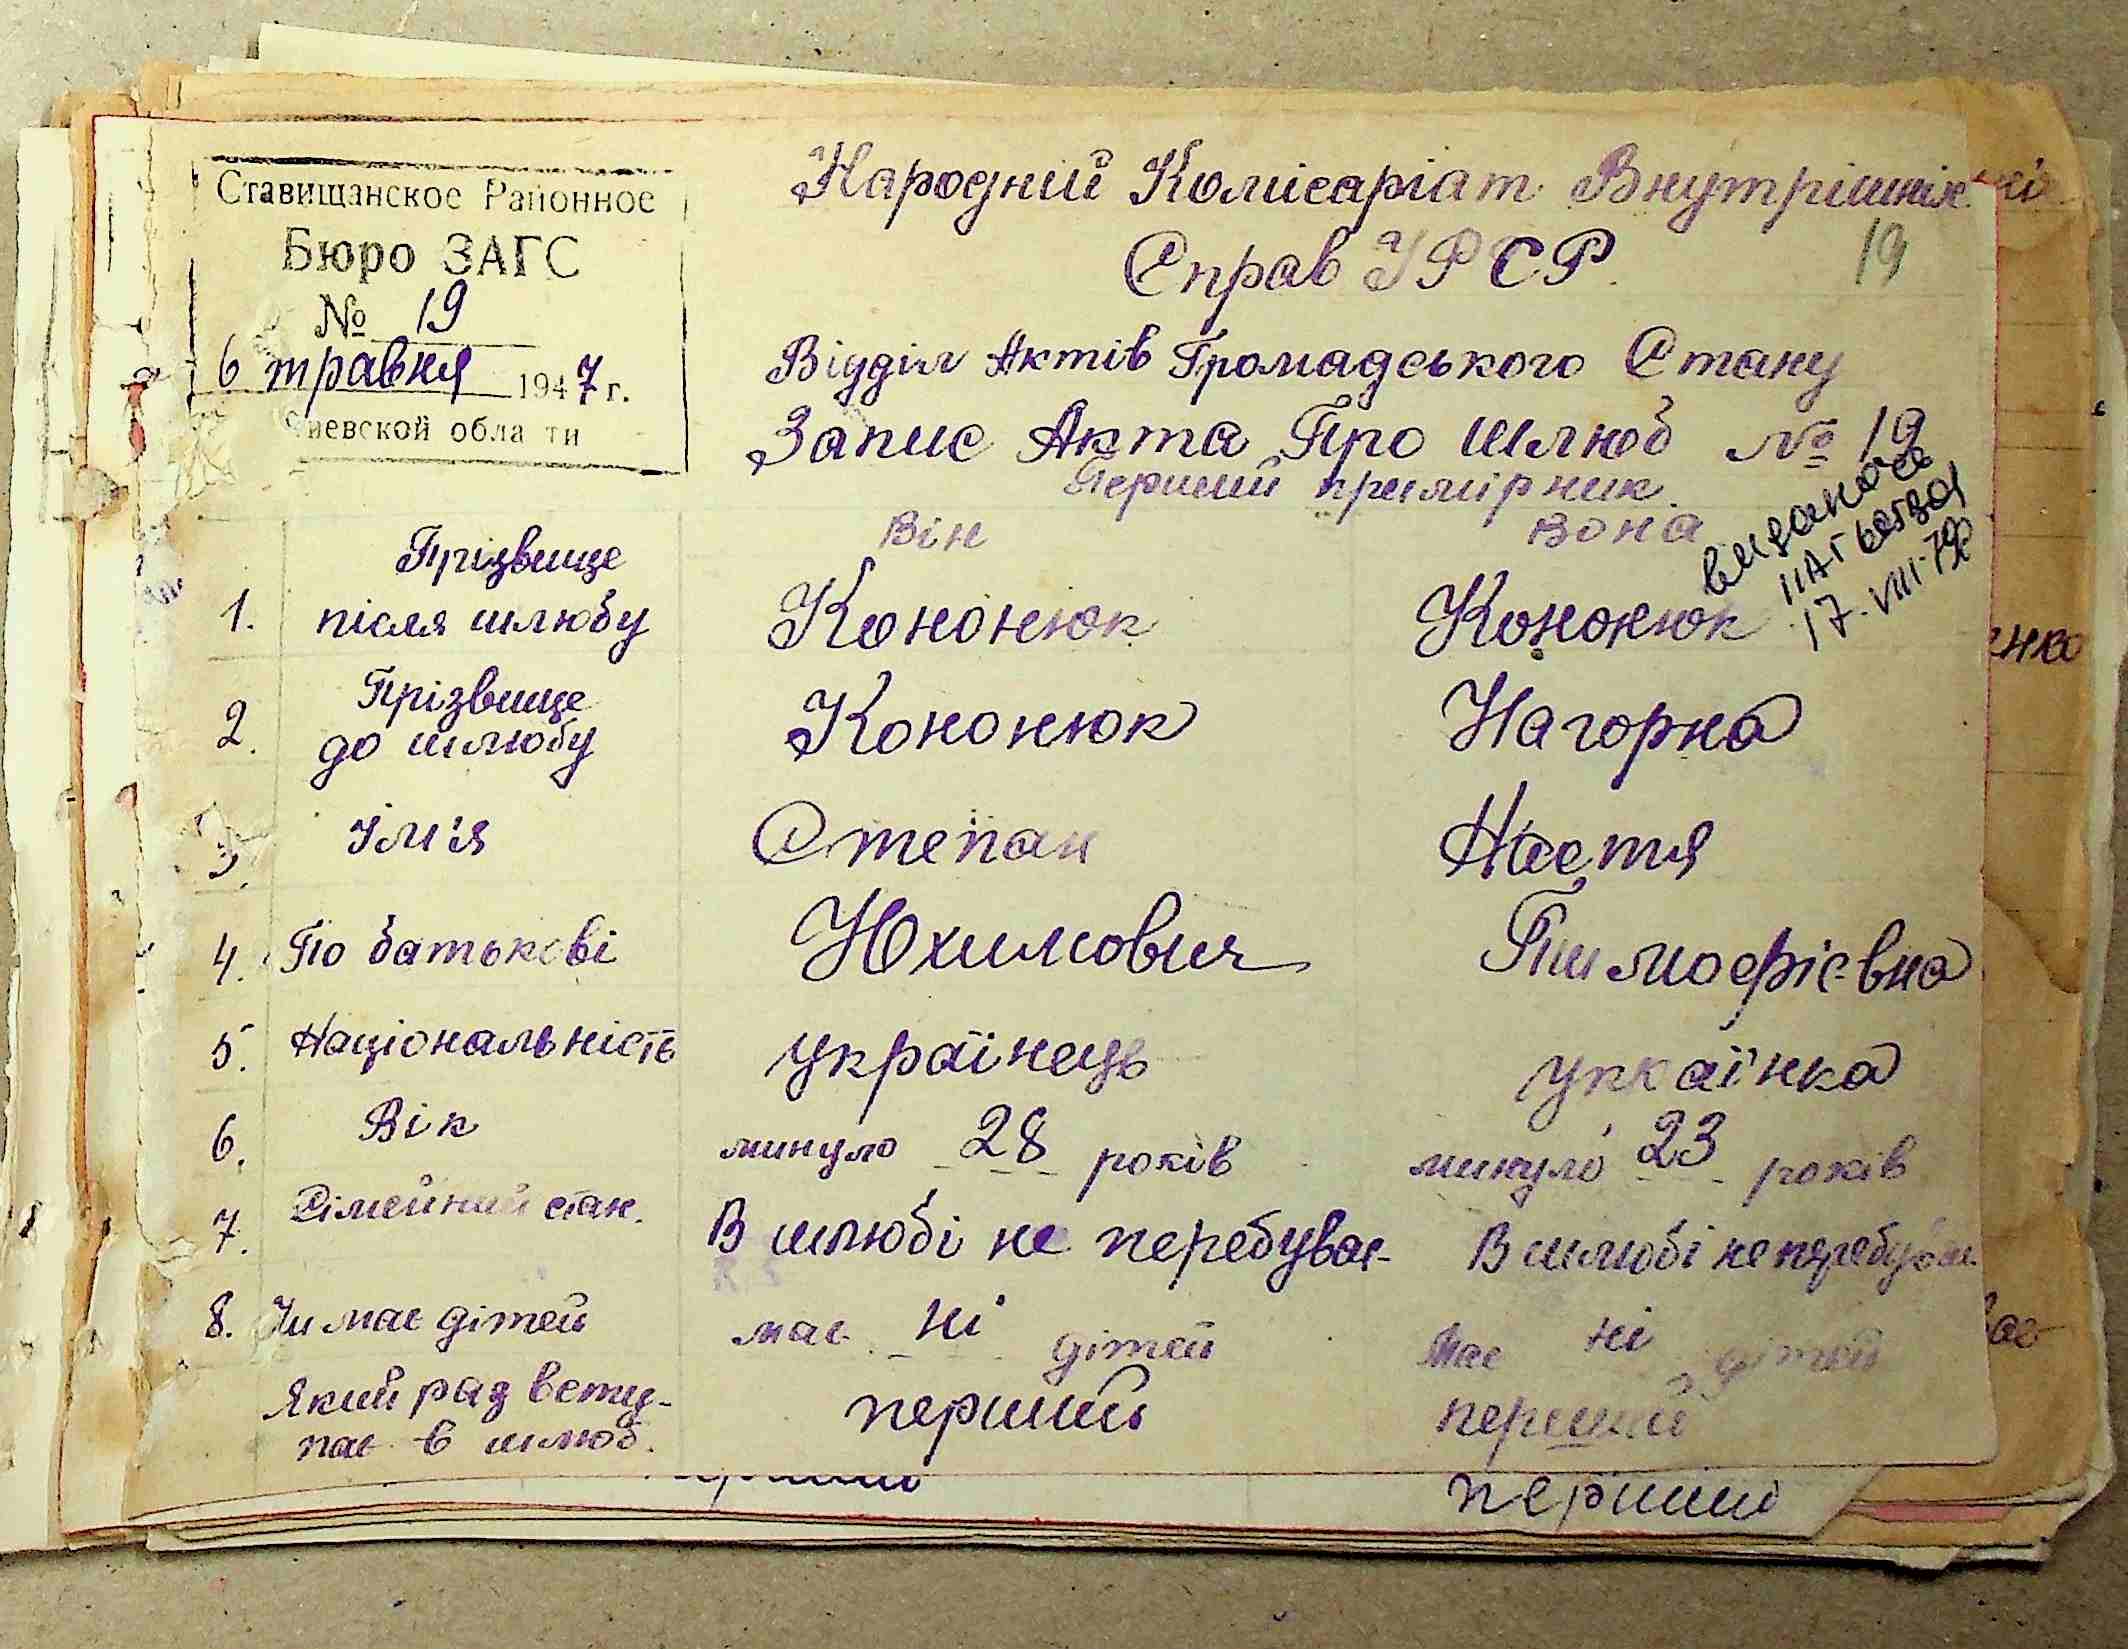 Ставищанское Районное
Бюро ЗАГС
№ 19
6 травня 1947 г.
Киевской области
Народній Комісаріат Внутрішніх
Справ УРСР.
19
Відділ Актів Громадського Стану
Запис Акта Про Шлюб № 19
Перший примірник
17.VIII-79
Він Вона
1. Прізвище
після шлюбу Кононюк Кононюк
2. Прізвище
до шлюбу Кононюк Нагорна
3. Ім'я Степан Настя
4. По батькові Юхимович Тимофієвна
5. Національність українець украінка
6. Вік минуло 28 років минуло 23 років
7. Сімейний стан. В шлюбі не перебуває В шлюбі не перебуває
8. Чи має дітей має ні дітей має ні дітей
Який раз всту-
пає в шлюб. перший перший
перший